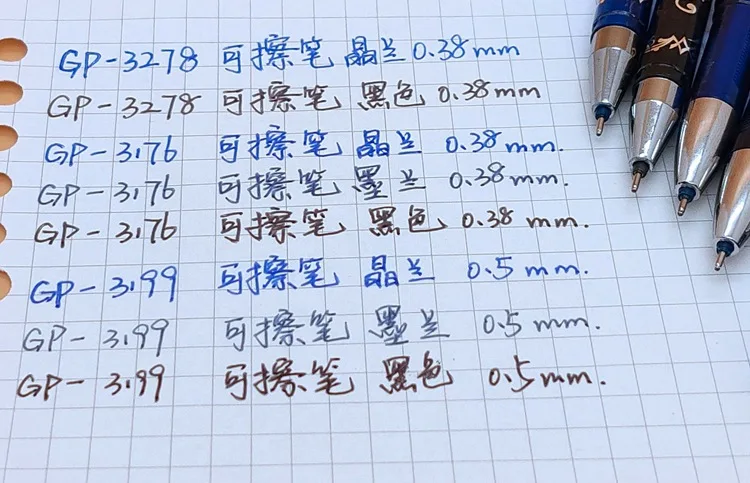 GP-3278 可擦笔 晶兰 0.38mm
GP-3278 可擦笔 黑色 0.38mm
GP-3176 可擦笔 晶兰 0.38mm.
GP-3176 可擦笔 墨兰 0.38mm.
GP-3176 可擦笔 黑色 0.38mm.
GP-3199 可擦笔 晶兰 0.5mm.
GP-3199 可擦笔 墨兰 0.5mm.
GP-3199 可擦笔 黑色 0.5mm.